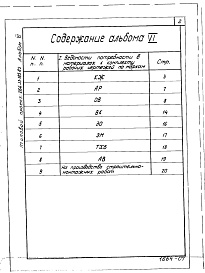 2
Содержание альбома VI
N. N. п. п.
I Ведомости потребности в материалах к комплекту рабочих чертежей по маркам
Стр.
1 КЖ 3
2 АР 7
3 ОВ 8
4 ВК 14
5 ЭО 16
6 ЭМ 17
7 ТХВ 18
8 АВ 19
9 На производство строительно-монтажных работ 20
1664-07